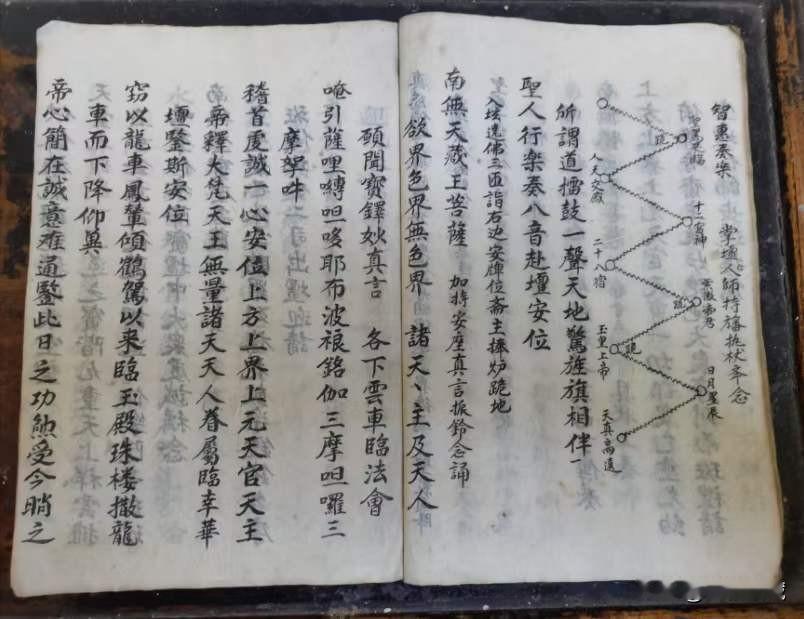 智惠奏樂
掌壇人師持旛杖齐念
十二宮神
人天交
二十八宿
紫微帝君
玉皇上帝
日月星辰
天真高遠
跪
跪
跪
所謂道擂鼓一聲天地驚旌旗相伴一
聖人行樂奏八音赴壇安位
入坛遶佛三匝詣右边安牌位斋主捧炉跪地
南無天藏王菩薩 加持安座真言振鈴念誦
欲界色界無色界 諸天丶主及天人
願聞寶鐸妙真言 各下雲車臨法會
唵引薩哩嚩呾哆耶布波裉銘伽三摩呾囉三
摩拏吽
稽首虔誠一心安位上方上界上元天官天主
帝釋大梵天王無量諸天天人眷屬臨幸華
壇鑒斯安位
窃以龍車鳳輦傾鶴駕以来臨玉殿珠楼撤龍
車而下降仰兾
帝心簡在誠意难通鑒此日之功勲受今晌之